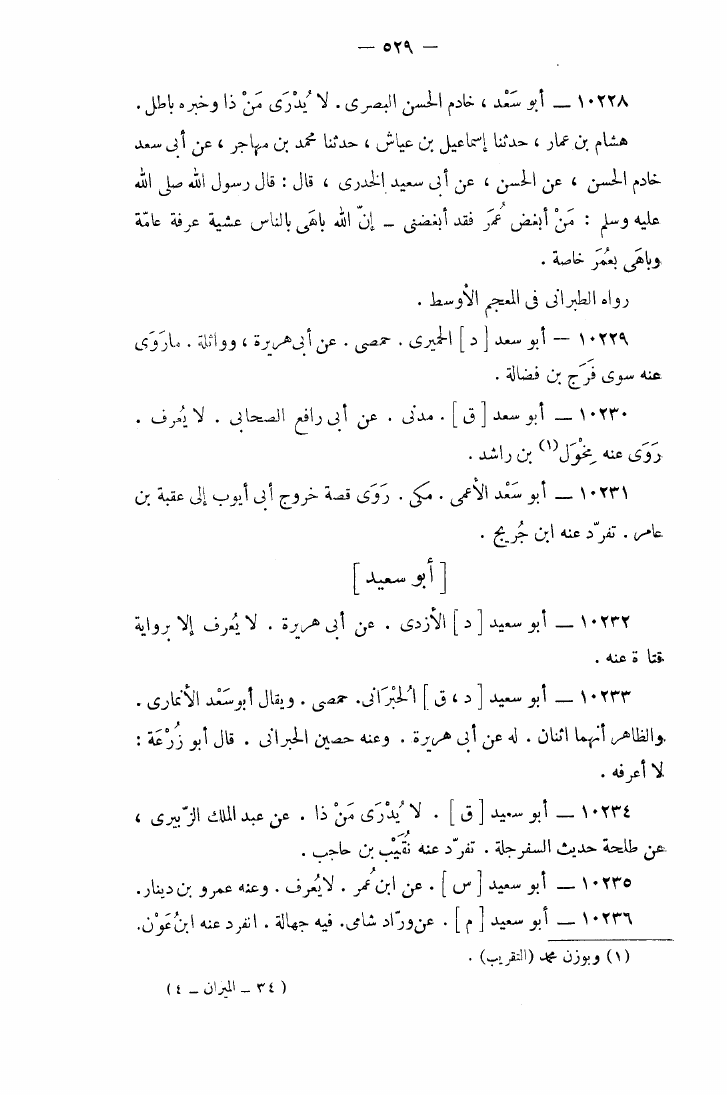 — ٥٢٩ —
١٠٢٢٨ — أبو سَعْد ، خادم الحسن البصرى . لا يُدْرَى مَنْ ذا وخبره باطل .
هشام بن عمار ، حدثنا إسماعيل بن عياش ، حدثنا محمد بن مهاجر ، عن أبى سعد
خادم الحسن ، عن الحسن ، عن أبى سعيد الخدرى ، قال : قال رسول الله صلى الله
عليه وسلم : مَنْ أبغض عُمَر فقد أبغضنى – إنّ الله باهَى بالناس عشية عرفة عامّة
وباهَى بعُمَر خاصة .
رواه الطبرانى فى المعجم الأوسط .
١٠٢٢٩ — أبو سعد [ د ] الحميرى . حمصى . عن أبى هريرة ، وواثلة . مارَوَى
عنه سوى فَرَج بن فضالة .
١٠٢٣٠ — أبو سعد [ ق ] . مدنى . عن أبى رافع الصحابى . لا يُعرف .
رَوَى عنه مِخْوَل(١) بن راشد .
١٠٢٣١ — أبو سَعْد الأعمى . مكى . رَوَى قصة خروج أبى أيوب إلى عقبة بن
عامر . تفرّد عنه ابن جُريج .
[ أبو سعيد ]
١٠٢٣٢ — أبو سعيد [ د ] الأزدى . عن أبى هريرة . لا يُعرف إلا برواية
قتا ة عنه .
١٠٢٣٣ — أبو سعيد [ د ، ق ] الحُبْرَانى. حمصى . ويقال أبو سَعْد الأنمارى .
والظاهر أنهما اثنان . له عن أبى هريرة . وعنه حصين الحبرانى . قال أبو زُرْعَة :
لا أعرفه .
١٠٢٣٤ — أبو سعيد [ ق ] . لا يُدْرَى مَنْ ذا . عن عبد الملك الزّبيرى ،
عن طلحة حديث السفرجلة . تفرّد عنه نُقَيْب بن حاجب .
١٠٢٣٥ — أبو سعيد [ س ] . عن ابن عُمر . لايُعرف . وعنه عمرو بن دينار.
١٠٢٣٦ — أبو سعيد [ م ] . عن ورّاد شامى. فيه جهالة . انفرد عنه ابنُ عَوْن.
(١) وبوزن محمد (التقريب) .
( ٣٤ – الميزان – ٤ )